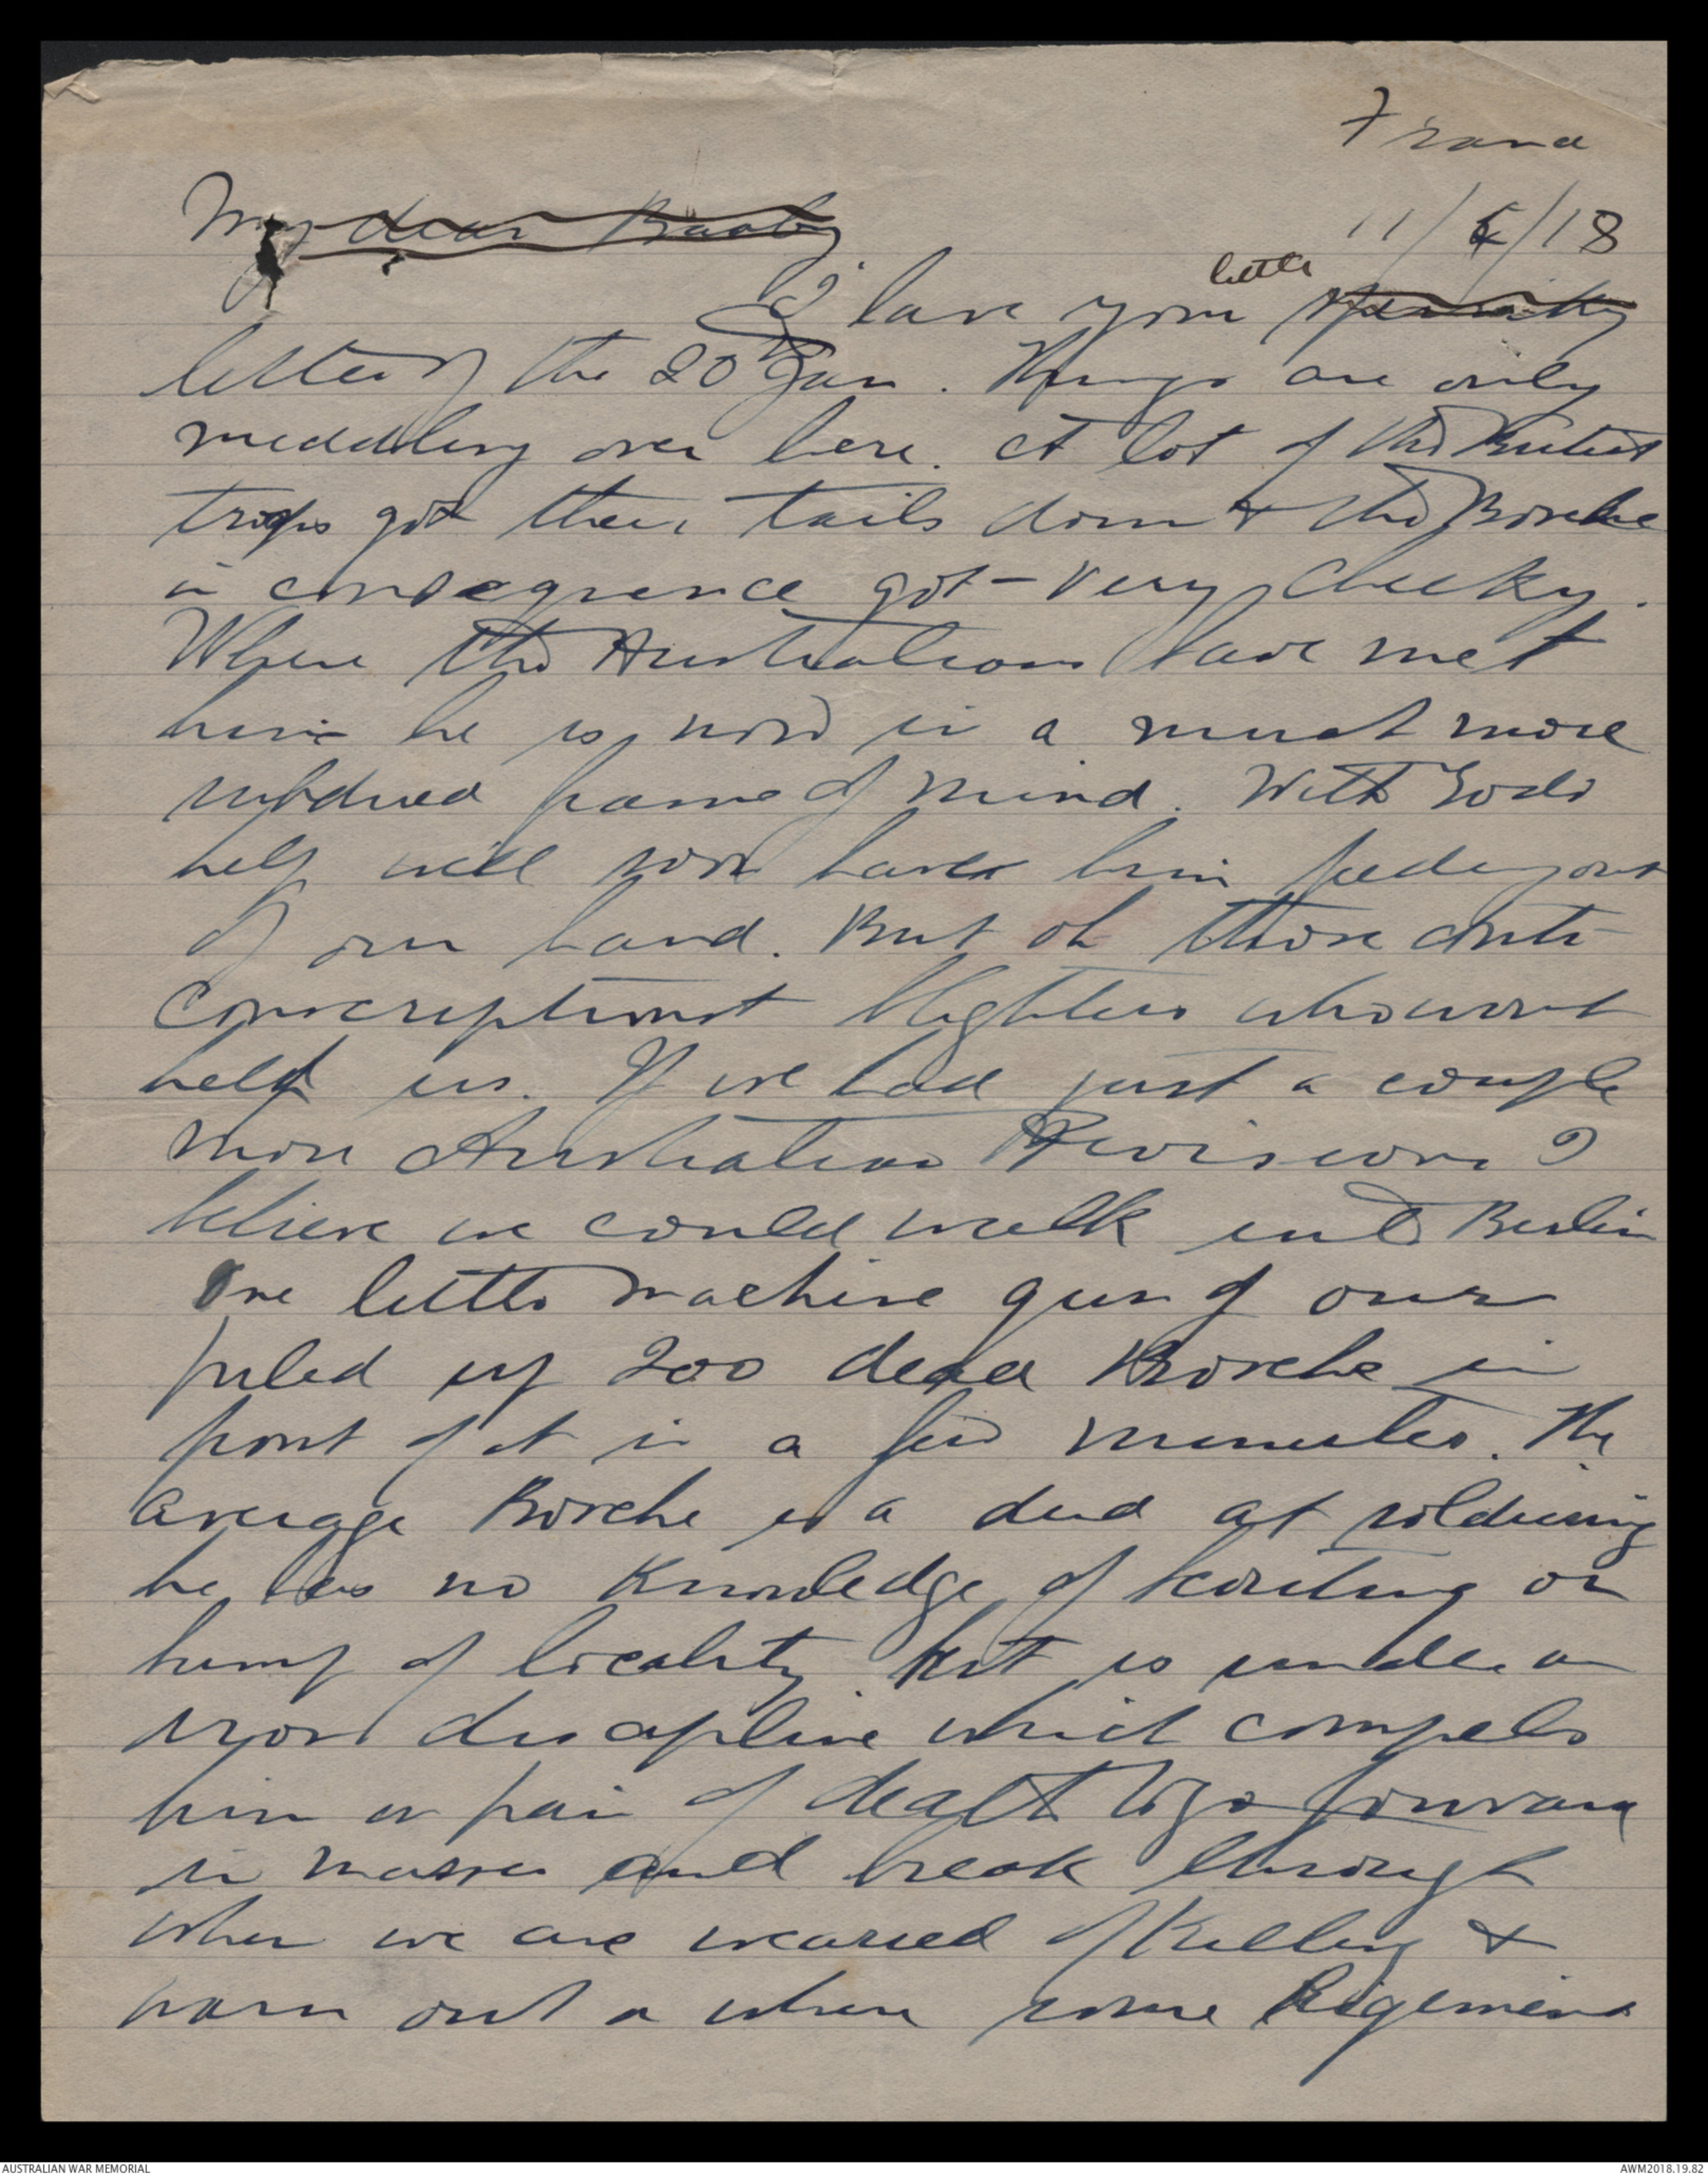 France
11/5/18
My dear Baaby
I have your little
letter of the 20 Jan. Things are only
middling over here. A lot of the British
troops got their tails down & the Bosche
in consequence got very cheeky.
Where the Australians have met
him he is now in a much more
subdued frame of mind. With Gods
help will soon have him feeding out
of our hand. But oh those anti
conscriptionist blighters who wont
help us. If we had just a couple
more Australian Divisions I
believe we could walk into Berlin
One little machine gun of ours
piled up 200 dead Bosche in
front of it in a few minutes. The
average Bosche is a dud at soldiering
he has no knowledge of scouting or
bump of locality but is under an
iron discipline which compels
him on pain of death to go forward
in masses and break through
when we are wearied of killing &
worn out or where some Regiment
AUSTRALIAN WAR MEMORIAL
AWM2018.19.82